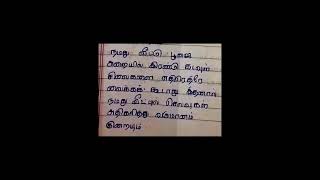 நமது வீட்டு பூஜை
அறையில் இரண்டு கடவுள்
சிலைகளை எதிரெதிரே
வைக்கக் கூடாது இதனால்
நமது வீட்டில் செலவுகள்
அதிகரித்து வருமானம்
குறையும்